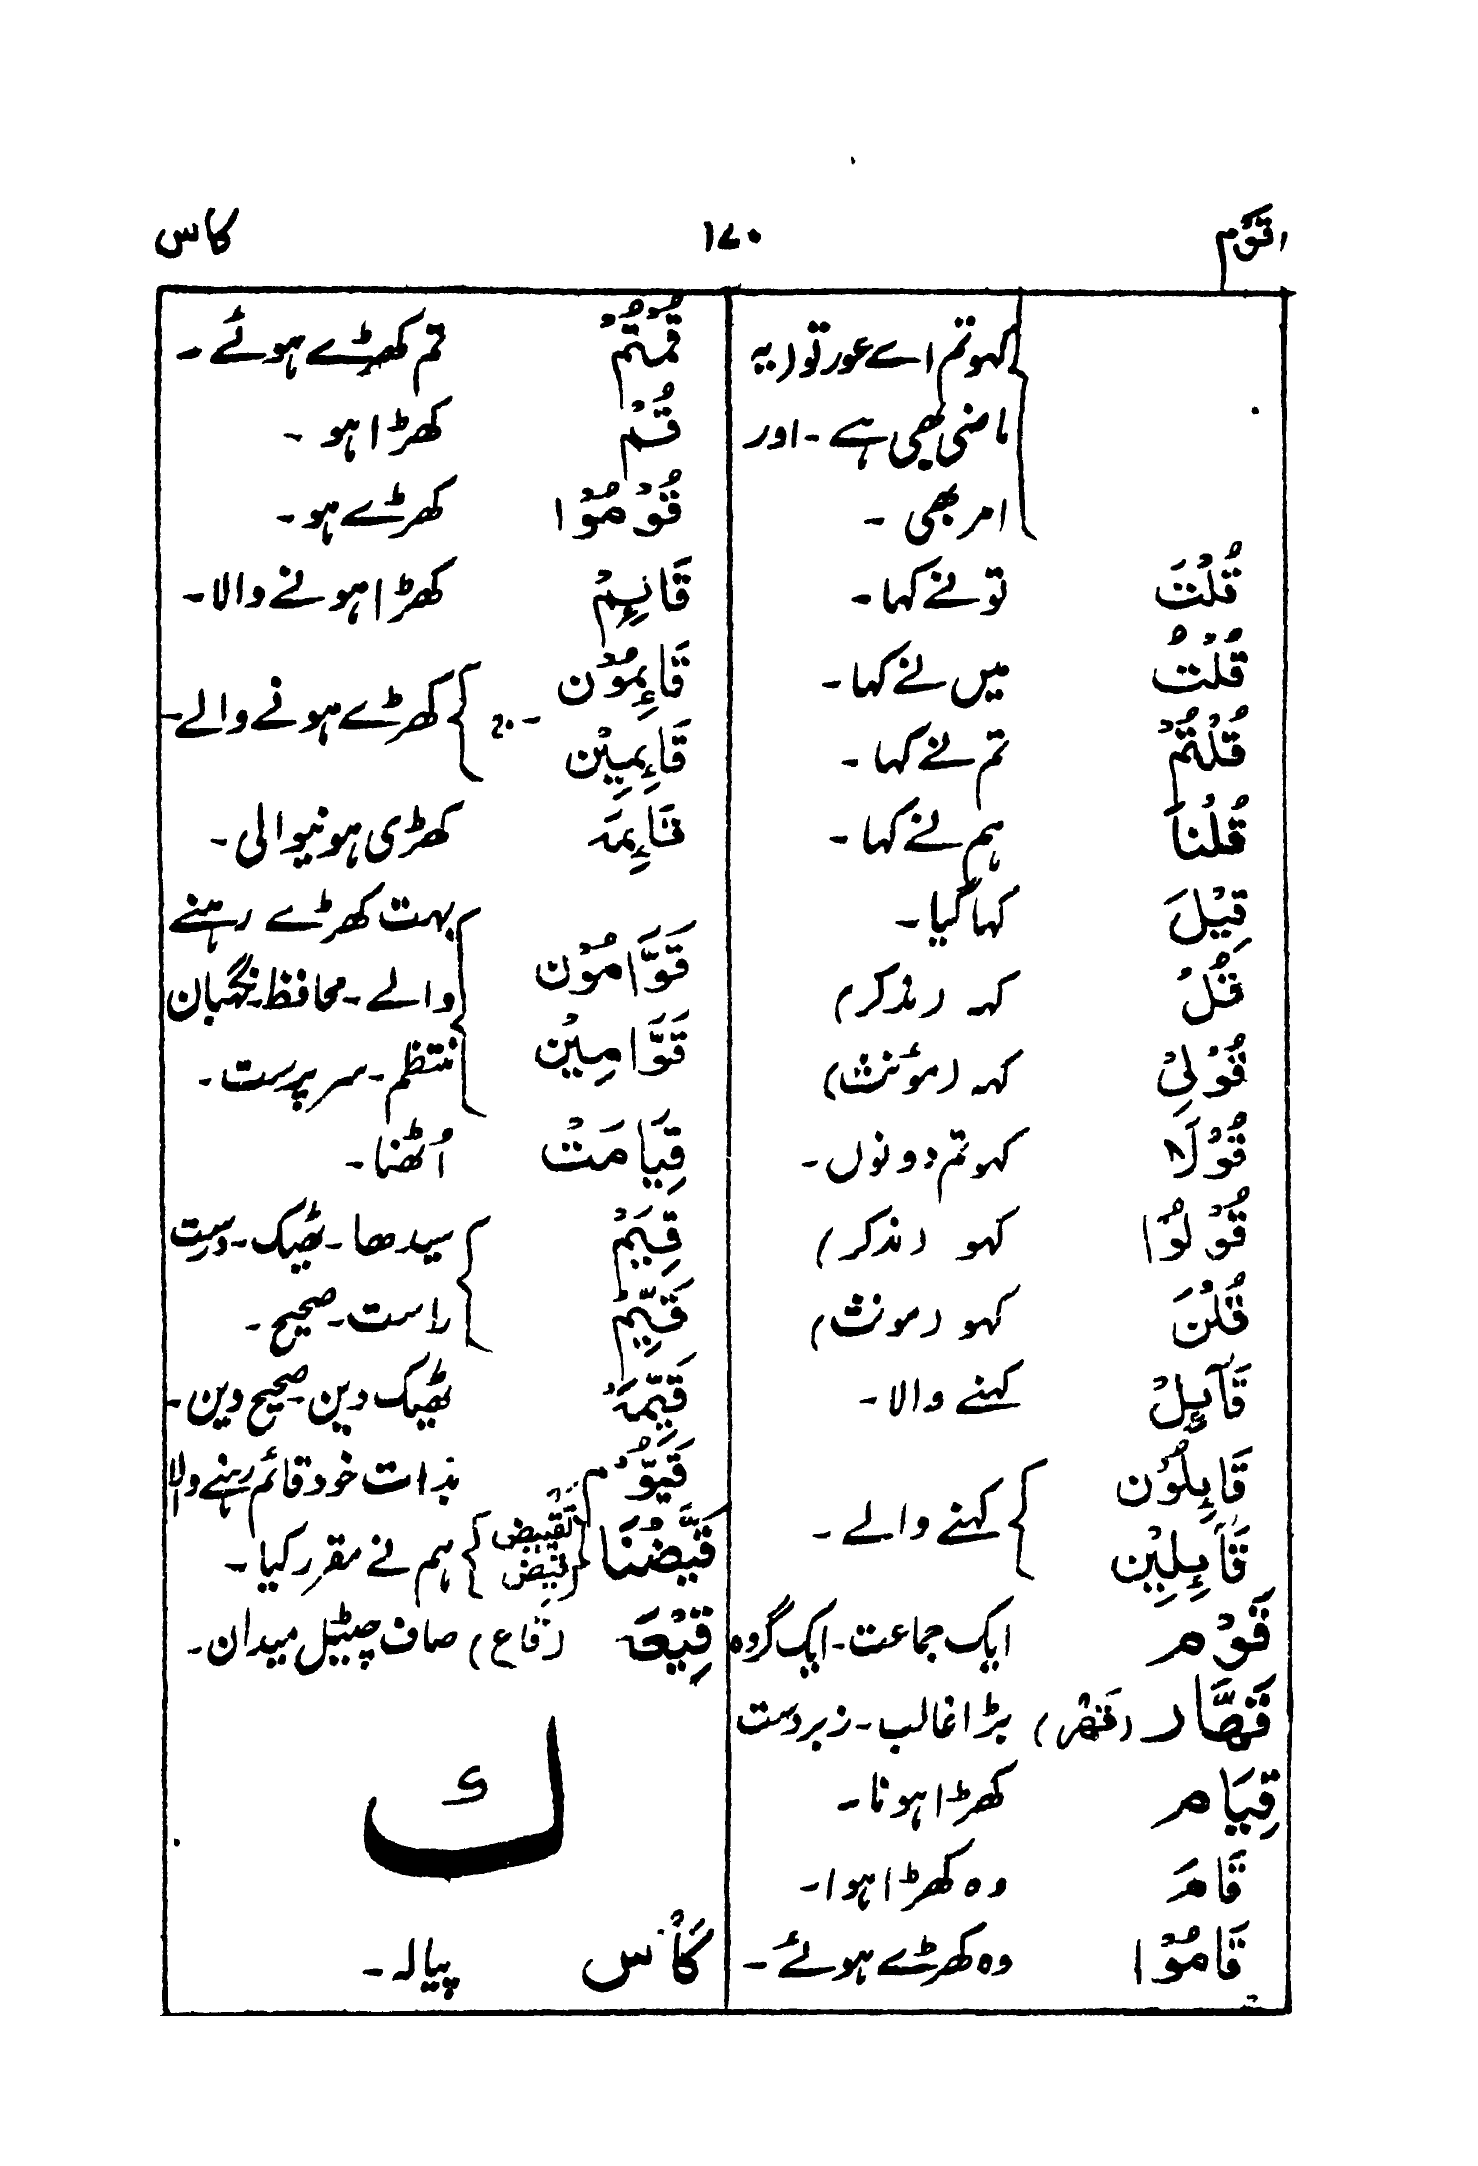 اقوم ۱۷۰ کاس
کہو تم اے عورتو (یہ
ماضی بھی ہے - اور
امر بھی -
قُلْتَ تو نے کہا -
قُلْتُ میں نے کہا -
قُلْتُمْ تم نے کہا -
قُلْنَا ہم نے کہا -
قِيْلَ کہا گیا -
قُلْ کہہ (مذکر)
قُوْلِیْ کہہ (مؤنث)
قُوْلَا کہو تم دونوں -
قُوْلُوْا کہو (مذکر)
قُلْنَ کہو (مونث)
قَآئِلْ کہنے والا -
قَآئِلُوْن
قَآئِلِيْن } کہنے والے -
قَوْم ایک جماعت - ایک گروہ
قَهَّار (قَهْر) بڑا غالب - زبردست
قِيَام کھڑا ہونا -
قَامَ وہ کھڑا ہوا -
قَامُوْا وہ کھڑے ہوئے -
قُمْتُمْ تم کھڑے ہوئے -
قُمْ کھڑا ہو -
قُوْمُوْا کھڑے ہو -
قَائِمْ کھڑا ہونے والا -
قَائِمُوْن
قَائِمِيْن } کھڑے ہونے والے -
قَائِمَہ کھڑی ہونیوالی -
قَوَّامُوْن بہت کھڑے رہنے
والے - محافظ - نگہبان
قَوَّامِيْن منتظم - سرپرست -
قِيَامَتْ اُٹھنا -
قِيَمْ سیدھا - ٹھیک - درست
قَيِّمْ راست - صحیح -
قَيِّمَہْ ٹھیک دین - صحیح دین -
قَيُّوْم بذات خود قائم رہنے والا
قَيَّضْنَا { تَقْيِيض قَيْض } ہم نے مقرر کیا -
قِيْعَہ (قاع) صاف چٹیل میدان -
ك
كَأْس پیالہ -